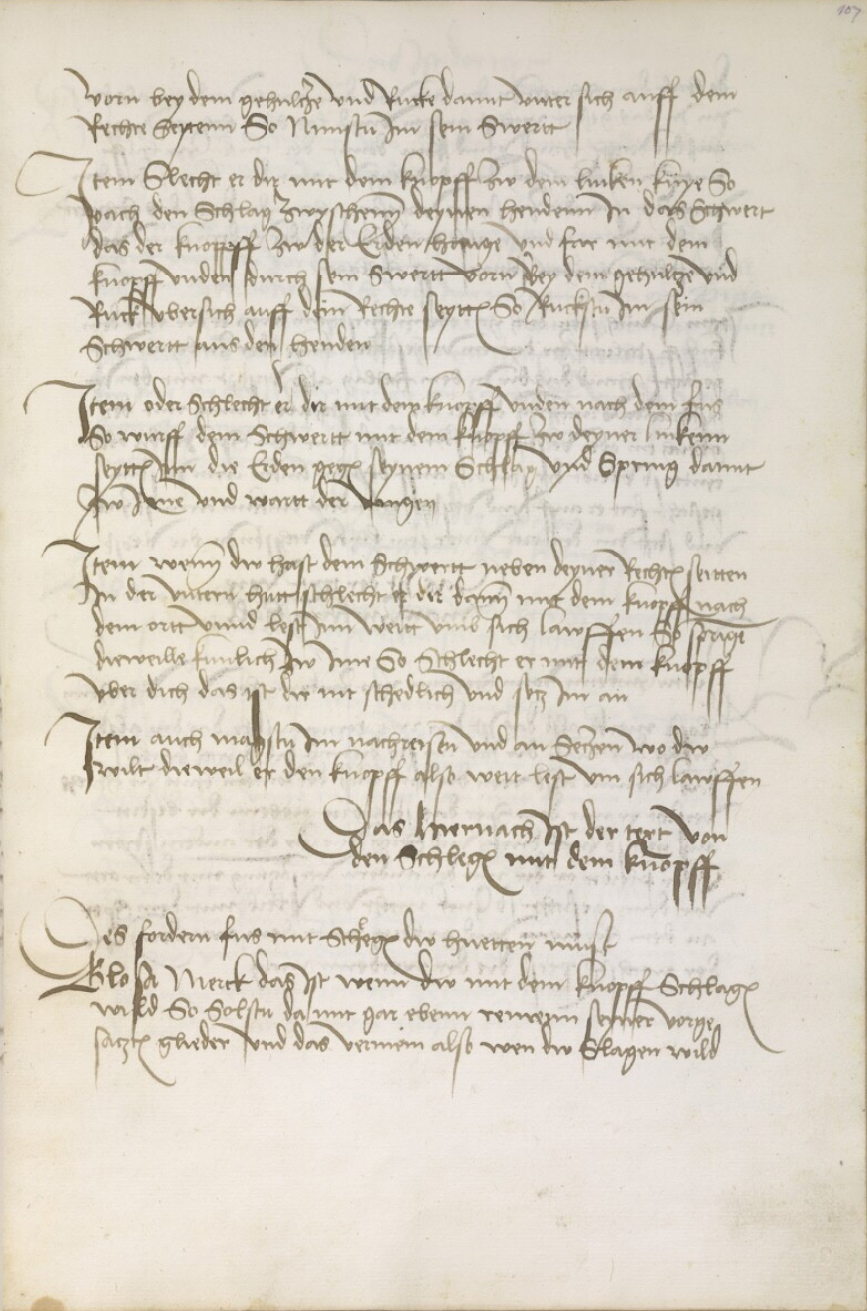 107
vorn bey dem gehultze vnd Rucke damit vnter sich auff dein
Rechte Seytenn So Nimstu Im sein Swertt
Item Slecht er dir mit dem knopff zw dem lincken knye So
vach den Schlag zwyschenn deynen hendenn In das Schwert
das der knopff zw der Erden hange vnd far mit dem
knopff vnden durch sein Swertt vorn bey dem gehultze vnd
Ruck vbersich auff dein Rechte seytten So Ruckstu Im sein
Schwertt aus den henden
Item oder Schlecht er dir mit dem knopff vnden nach dem fus
So wurff dein Schwertt mit dem knopff zw deyner linckenn
seytten Inn die Erden gegen seynem Schlag vnd Spring damit
zw Ime vnd wartt der
Item wenn dw hast dein Schwertt neben deyner Rechten seitten
In der vntern hutt schlecht er dir dann mit dem knopff nach
dem ortt vnnd lest Inn weitt vmb sich lawffen So spring
dieweille künlich zw Ime So Schlecht er mit dem knopff
vber dich das ist dir nit schedlich vnd setz Im an
Item auch magstu Im nachreisen vnd an Setzen wo dw
wilt dieweil er den knopff also weit lest vm sich lawffen
Das hiernach Ist der text von
den Schlegen mit dem knopff
Des fordern fus mit Schlegen dw huetten must
Glosa Merck das Ist wenn dw mit dem knopff Schlagen
wild So Solstu damit gar ebenn remenn seyner vorge
satzten glieder vnd das vernim also wen dw Slagen wild